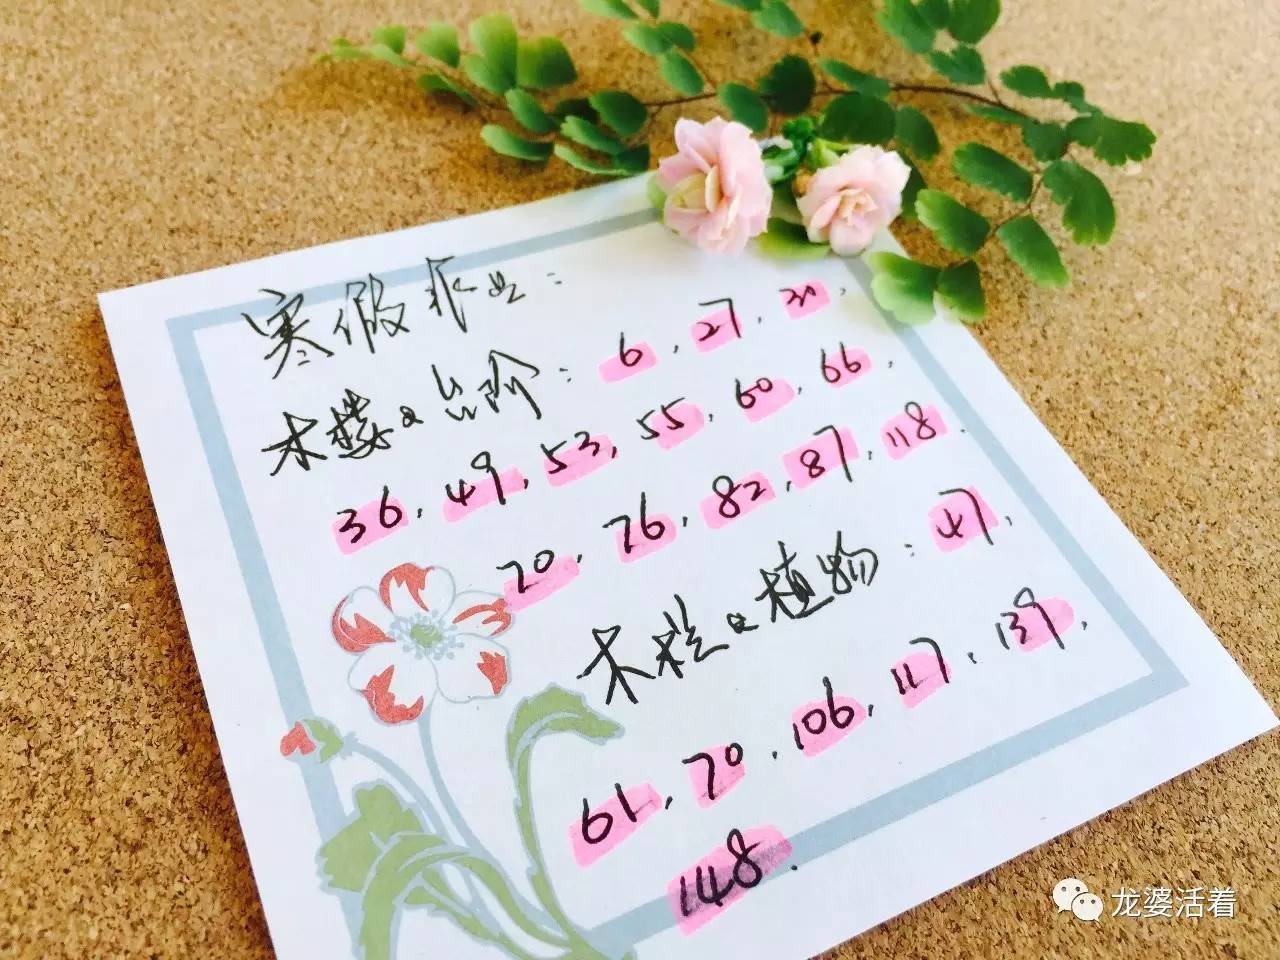 寒假作业：
木楼の台阶：6、27、30、
36、49、53、55、60、66、
70、76、82、87、118.
木栏の植物：47、
61、70、106、117、139、
148.
龙婆活着